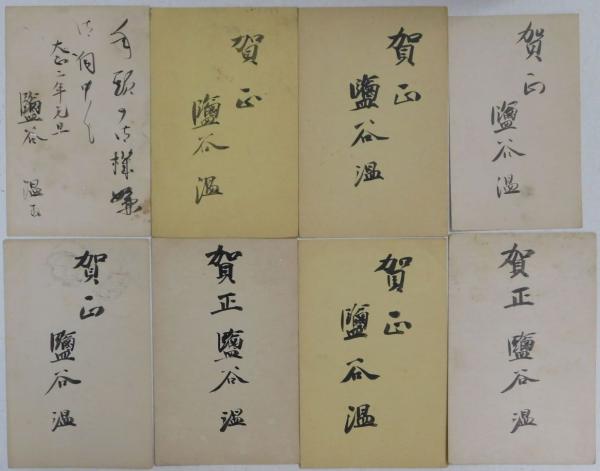 大正二年元旦
鹽谷 温
賀正
鹽谷 温
賀正
鹽谷 温
賀正
鹽谷 温
賀正
鹽谷 温
賀正 鹽谷 温
賀正
鹽谷 温
賀正 鹽谷 温